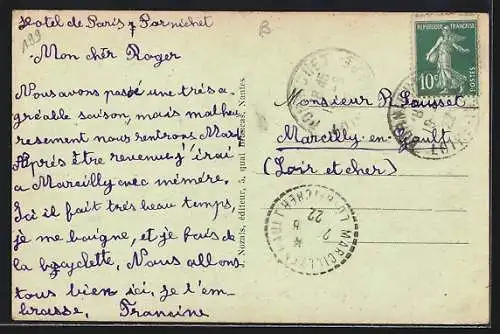 Hotel de Paris Pornichet
199
Mon cher Roger
Nous avons passé une très a-
gréable saison, mais malheu
resement nous rentrons Mardi
Après être revenu j'irai
a Marcilly avec mémère.
Ici il fait très beau temps,
je me baigne, et je fais de
la bycyclette. Nous allons
tous bien ici, je t'em-
brasse. Francine
J. Nozais, éditeur, 5, quai Brancas, Nantes
B
REPUBLIQUE FRANÇAISE
10c
POSTES
Monsieur R. Lousset
Marcilly-en-Gault
(Loir et cher)
MARCILLY-EN-GAULT
22